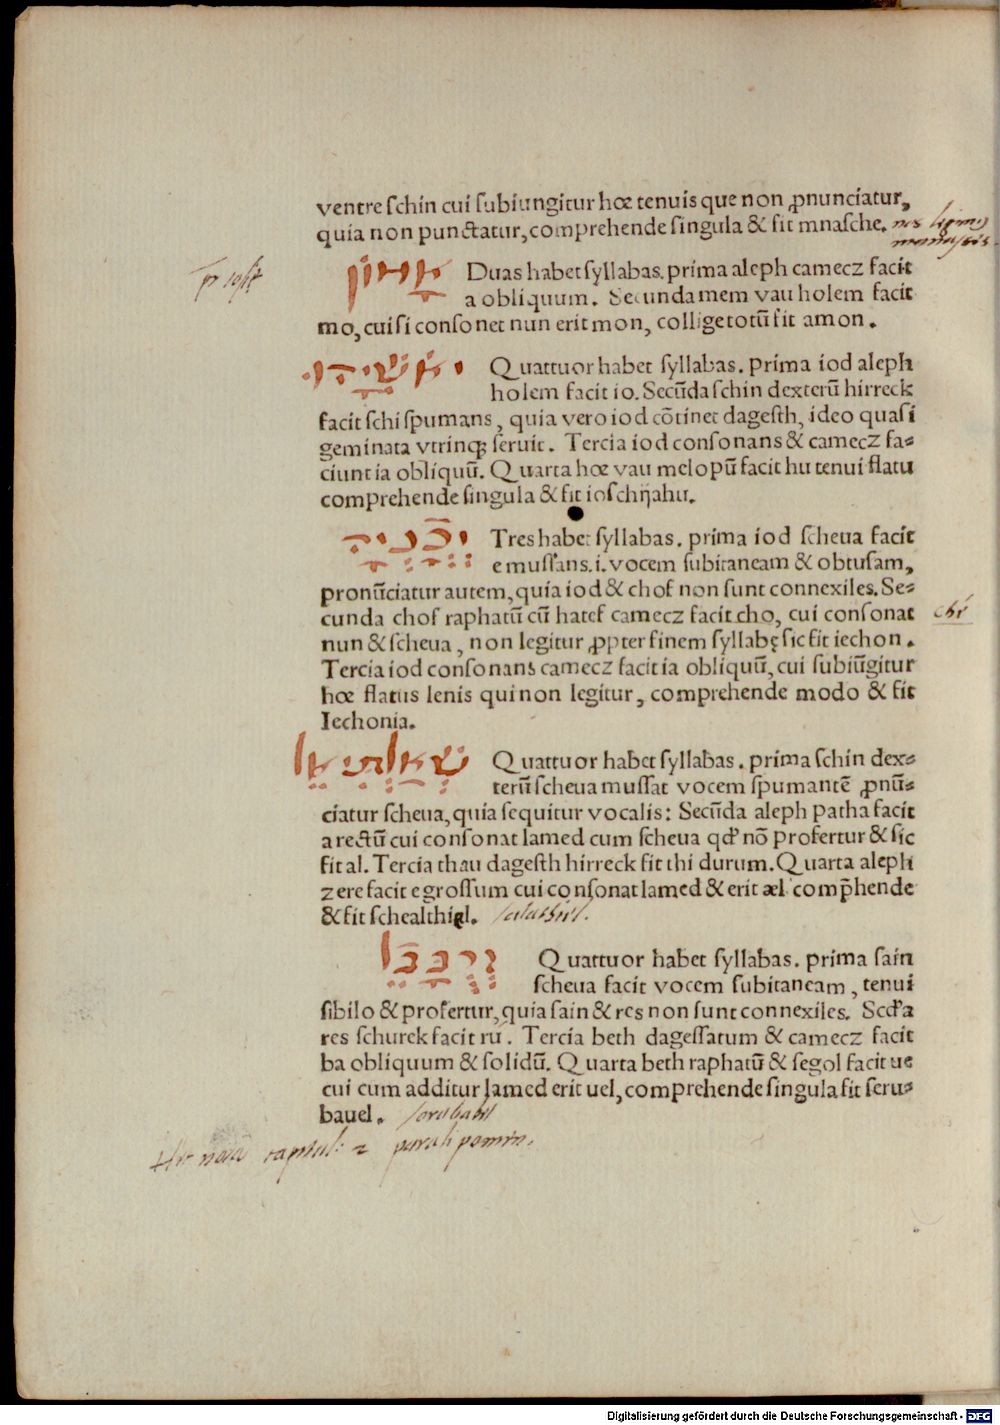 ventre schin cui subiungitur hœ tenuis que non ꝓnunciatur,
quia non punctatur, comprehende singula & fit mnasche. nos ligimus
manasses.
אָמוֹן Duas habet syllabas. prima aleph camecz facit
a obliquum. Secunda mem vau holem facit
mo, cui si consonet nun erit mon, collige totū fit amon.
יֹאשִׁיָּהוּ Quattuor habet syllabas. prima iod aleph
holem facit io. Secūda schin dexterū hirreck
facit schi spumans, quia vero iod cōtinet dagesth, ideo quasi
geminata vtrinqꝫ seruit. Tercia iod consonans & camecz fa-
ciunt ia obliquū. Quarta hœ vau melopū facit hu tenui flatu
comprehende singula & fit ioschijahu.
יְכֳנְיָה Tres habet syllabas. prima iod scheua facit
e mussans .i. vocem subitaneam & obtusam,
pronūciatur autem, quia iod & chof non sunt connexiles. Se-
cunda chof raphatū cū hatef camecz facit cho, cui consonat
nun & scheua, non legitur ꝓpter finem syllabę sic fit iechon.
Tercia iod consonans camecz facit ia obliquū, cui subiūgitur
hœ flatus lenis qui non legitur, comprehende modo & fit
Iechonia.
שְׁאַלְתִּיאֵל Quattuor habet syllabas. prima schin dex-
terū scheua mussat vocem spumantē ꝓnū-
ciatur scheua, quia sequitur vocalis: Secūda aleph patha facit
a rectū cui consonat lamed cum scheua qđ nō profertur & sic
fit al. Tercia thau dagesth hirreck fit thi durum. Quarta aleph
zere facit e grossum cui consonat lamed & erit æl comp̄hende
& fit schealthięl. salathiel.
זְרֻבָּבֶל Quattuor habet syllabas. prima sain
scheua facit vocem subitaneam, tenui
sibilo & profertur, quia sain & res non sunt connexiles. Scđa
res schurek facit ru. Tercia beth dagessatum & camecz facit
ba obliquum & solidū. Quarta beth raphatū & segol facit ue
cui cum additur lamed erit uel, comprehende singula fit seru-
bauel. sorobabel
Digitalisierung gefördert durch die Deutsche Forschungsgemeinschaft - DFG